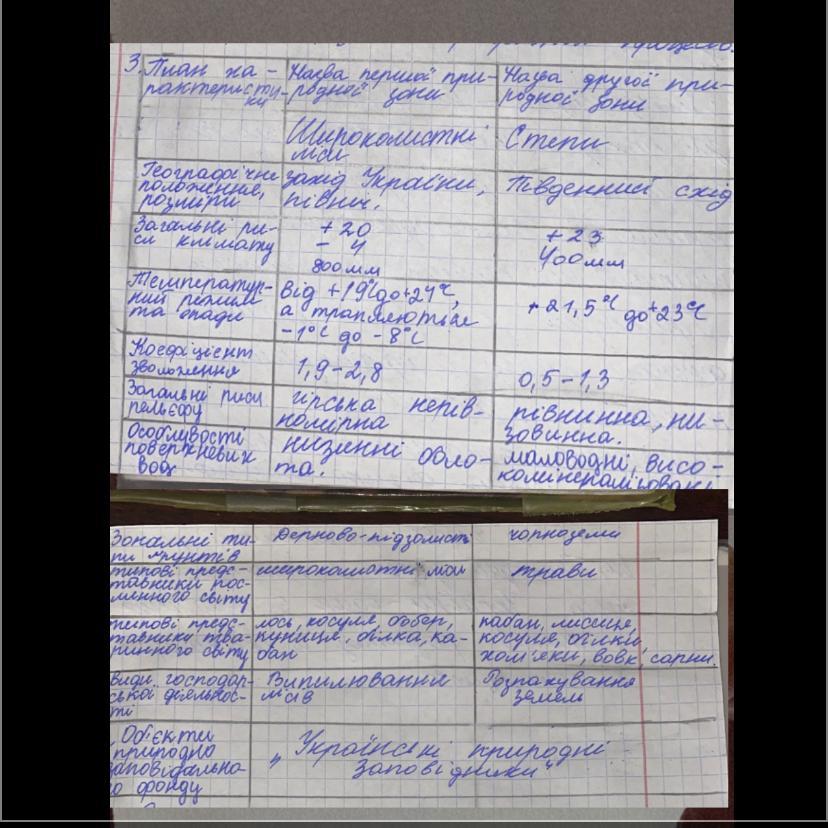 3. План ха-
рактеристи-
ки
Назва першої при-
родної зони
Назва другої при-
родної зони
Широколистні
ліси
Степи
Географічне
положення,
розміри
захід України,
північ.
Південний схід
Загальні ри-
си клімату
+20
- 4
800мм
+23
400мм
Температур-
ний режим
та опади
Від +19°С до +24°С,
а трапляються
-1°С до -8°С
+21,5°С до +23°С
Коефіцієнт
зволоження
1,9-2,8
0,5-1,3
Загальні риси
рельєфу
гірська нерів-
номірна
рівнинна, ни-
зовинна.
Особливості
поверхневих
вод
низинні боло-
та.
маловодні, висо-
комінералізовані
Зональні ти-
пи ґрунтів
Дерново-підзолисті
чорноземи
типові предс-
тавники рос-
линного світу
широколистні ліси
трави
типові предс-
тавники тва-
ринного світу
лось, косуля, бобер,
куниця, білка, ка-
бан
кабан, лисиця,
косуля, білки,
хом'яки, вовк, сарни.
види господар-
ської діяльнос-
ті
Випилювання
лісів
Розпахування
земель
Об'єкти
природно
заповідально-
го фонду
"Українські природні
заповідники"